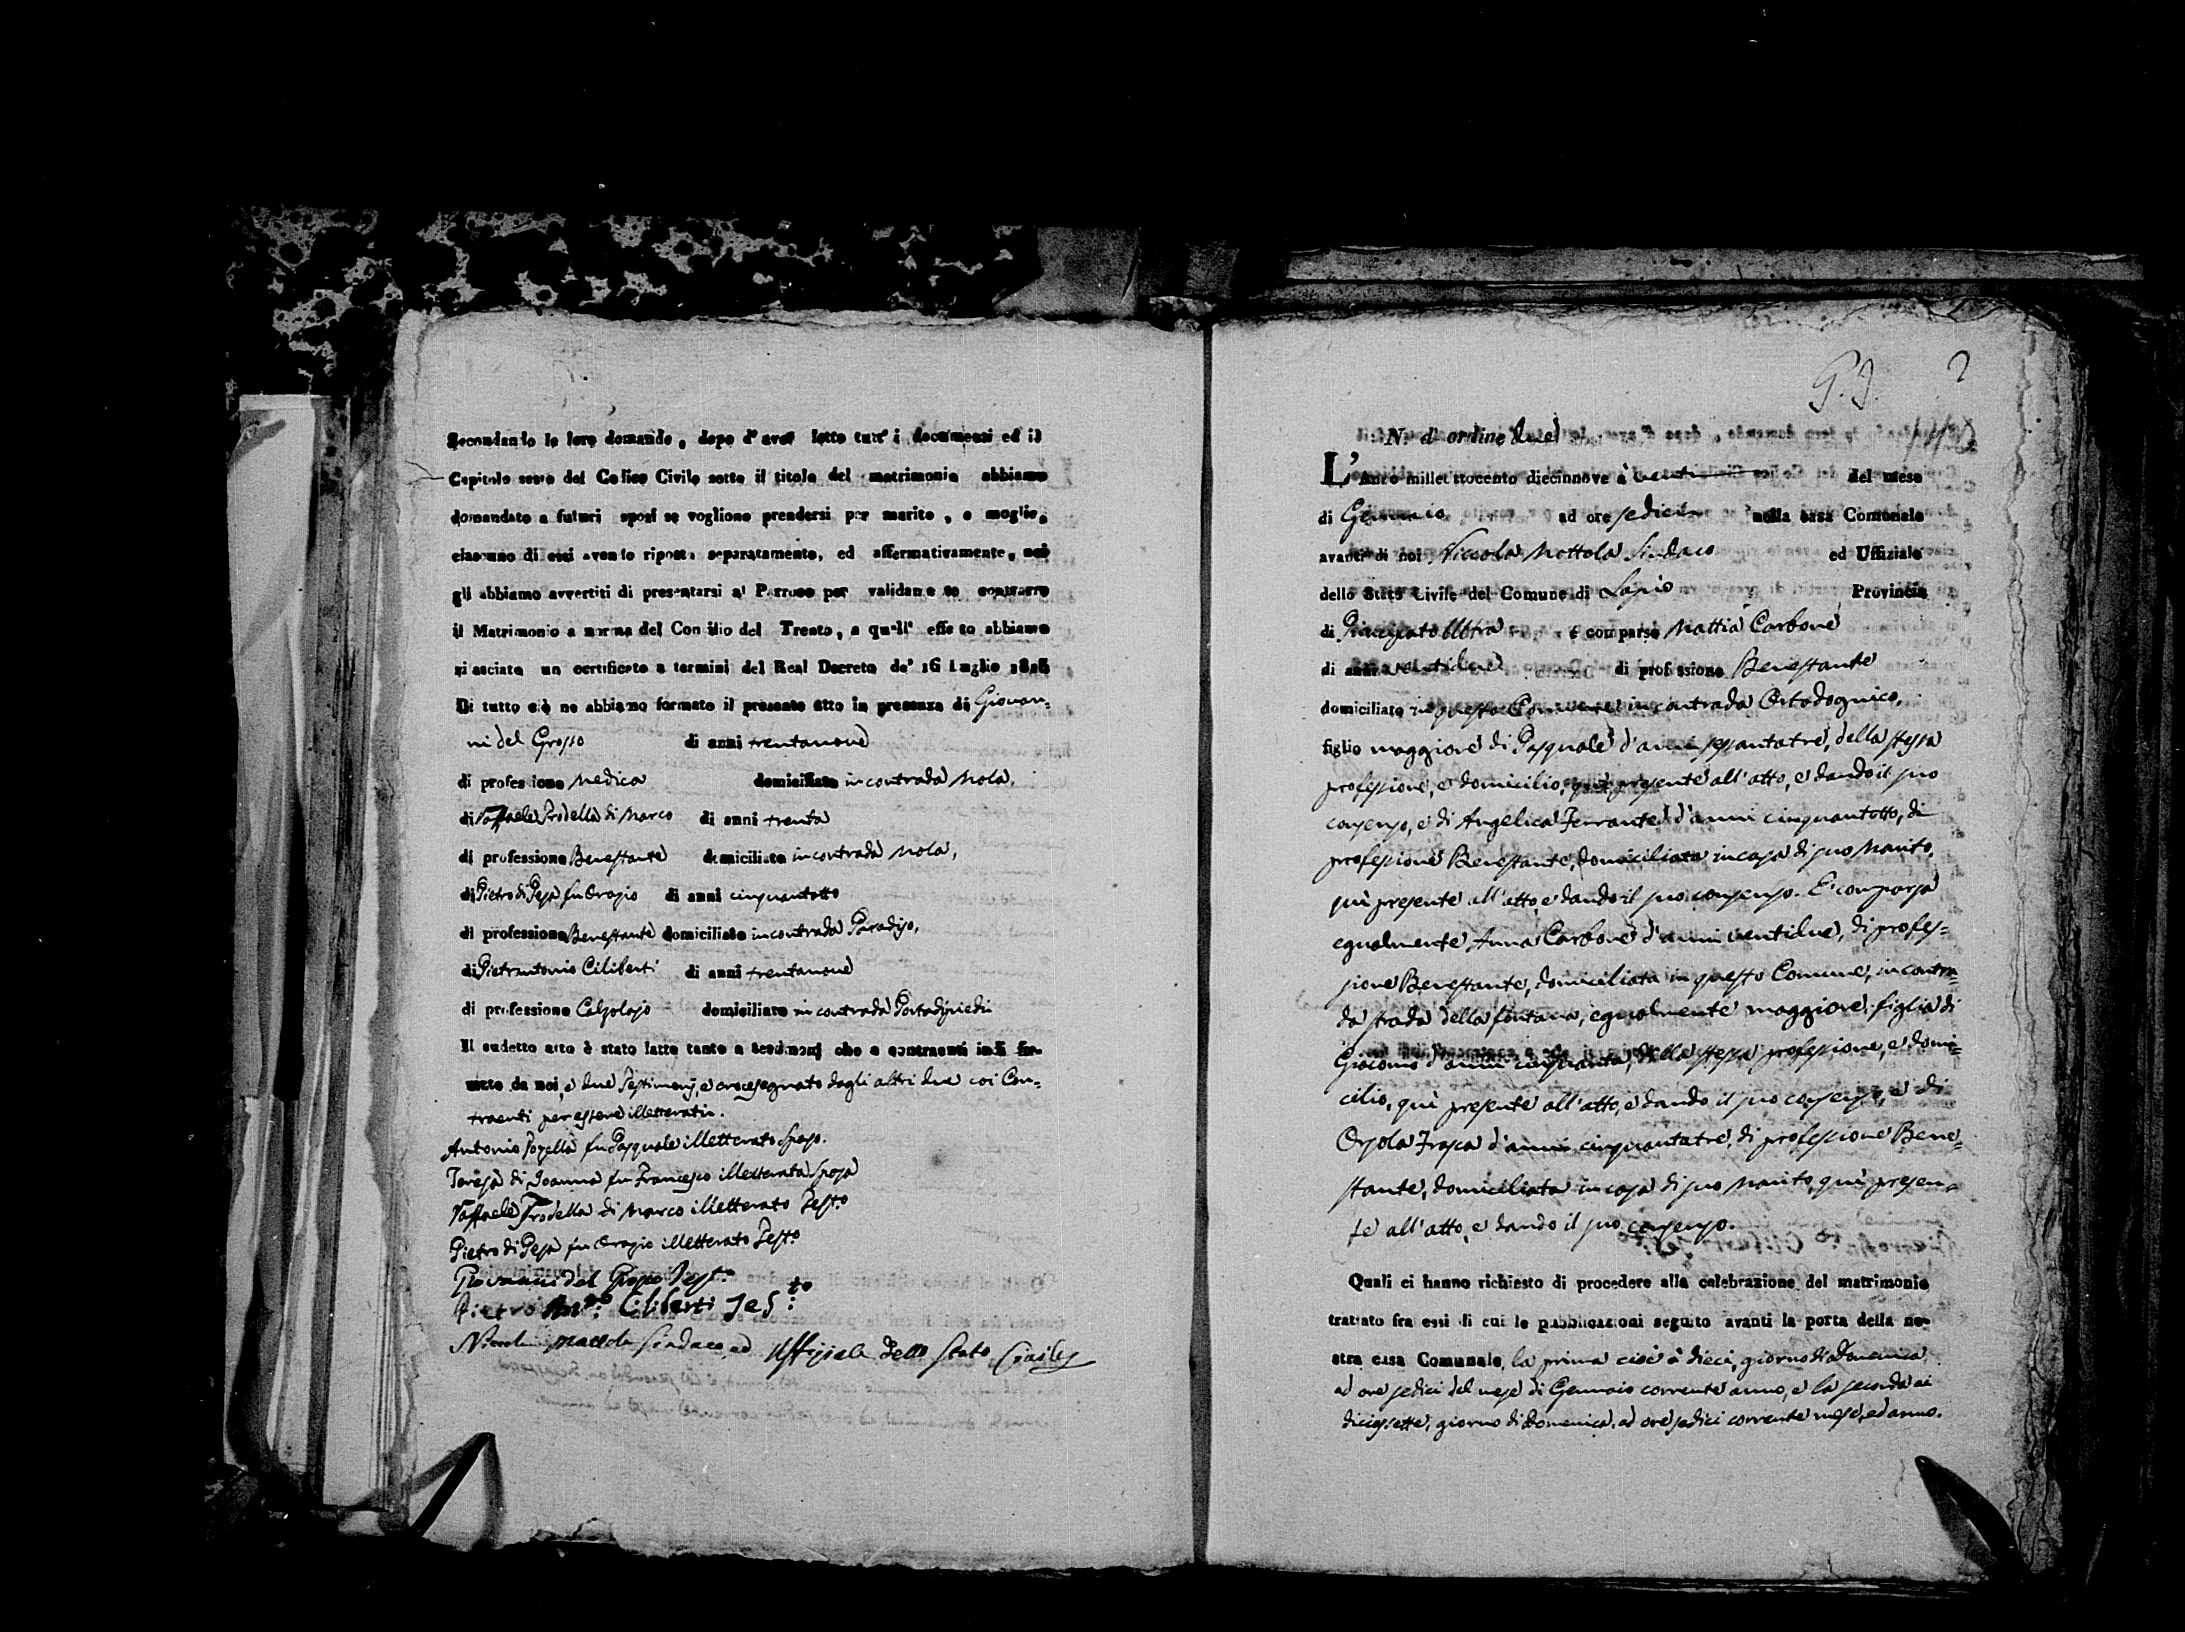 Secondando le loro domande, dopo d'aver letto tutt' i documenti ed il
Capitolo sesto del Codice Civile sotto il titolo del matrimonio abbiamo
domandato a futuri sposi se vogliono prendersi per marito, e moglie,
ciascuno di essi avendo risposto separatamente, ed affermativamente, noi
gli abbiamo avvertiti di presentarsi al Parroco per validamente contrarre
il Matrimonio a norma del Concilio del Trento, a quell' effetto abbiamo
rilasciato un certificato a termini del Real Decreto de' 16 Luglio
Di tutto ciò ne abbiamo formato il presente atto in presenza di Giovan=
ni del Grosso di anni trentanove
di professione Medico domiciliato in contrada Mola,
di Raffaele Trodella di Marco di anni trenta
di professione Benestante domiciliato in contrada Mola,
di Pietro di Pesa fu Orazio di anni cinquantotto
di professione Benestante domiciliato in contrada Paradiso,
di Pietrantonio Ciliberti di anni trentanove
di professione Calzolajo domiciliato in contrada
Il sudetto atto è stato letto tanto a testimonj che a contraenti indi fir-
mato da noi, e due Testimonj, e crocesegnato dagli altri due coi Con=
traenti per essere illetterati.
Antonio fu Pasquale illetterato Sposo.
Teresa di Joanna fu Francesco illetterata Sposa
Raffaele Trodella di Marco illetterato Testo
Pietro di Pesa fu Orazio illetterato Testo
Giovanni del Grosso Test.o
Pietro Anto: Ciliberti Tes:to
Niccola Mottola Sindaco, ed Uffiziale dello Stato Civile
G. J. 2
N. d' ordine due
L'Anno millettocento diecinnove à venti del mese
di Gennaio ad ore sedici nella casa Comunale
avanti di noi Niccola Mottola Sindaco ed Uffiziale
dello Stato Civile del Comune di Lapio Provincia
di Principato Ultra è comparso Mattia Carbone
di anni ventidue di professione Benestante
domiciliato in questo Comune in contrada Ortodognico,
figlio maggiore di Pasquale d'anni sessantatre, della stessa
professione, e domicilio, quì presente all'atto, e dando il suo
consenso, e di Angelica Ferrante d'anni cinquantotto, di
professione Benestante, domiciliata in casa di suo Marito,
quì presente all'atto, e dando il suo consenso. E' comparsa
egualmente Anna Carbone d'anni ventidue, di profes=
sione Benestante, domiciliata in questo Comune, in contra=
da strada della fontana, egualmente maggiore, figlia di
Giacomo d'anni cinquanta, della stessa professione, e domi=
cilio, quì presente all'atto, e dando il suo consenso, e di
Orsola Frasca d'anni cinquantatre, di professione Bene=
stante, domiciliata in casa di suo Marito, quì presen=
te all'atto, e dando il suo consenso.
Quali ci hanno richiesto di procedere alla celebrazione del matrimonio
trattato fra essi di cui le pubblicazioni seguito avanti la porta della no-
stra casa Comunale, la prima cioè à dieci, giorno di Domenica,
ad ore sedici del mese di Gennaio corrente anno, e la seconda ai
diciassette, giorno di Domenica, ad ore sedici corrente mese, ed anno.